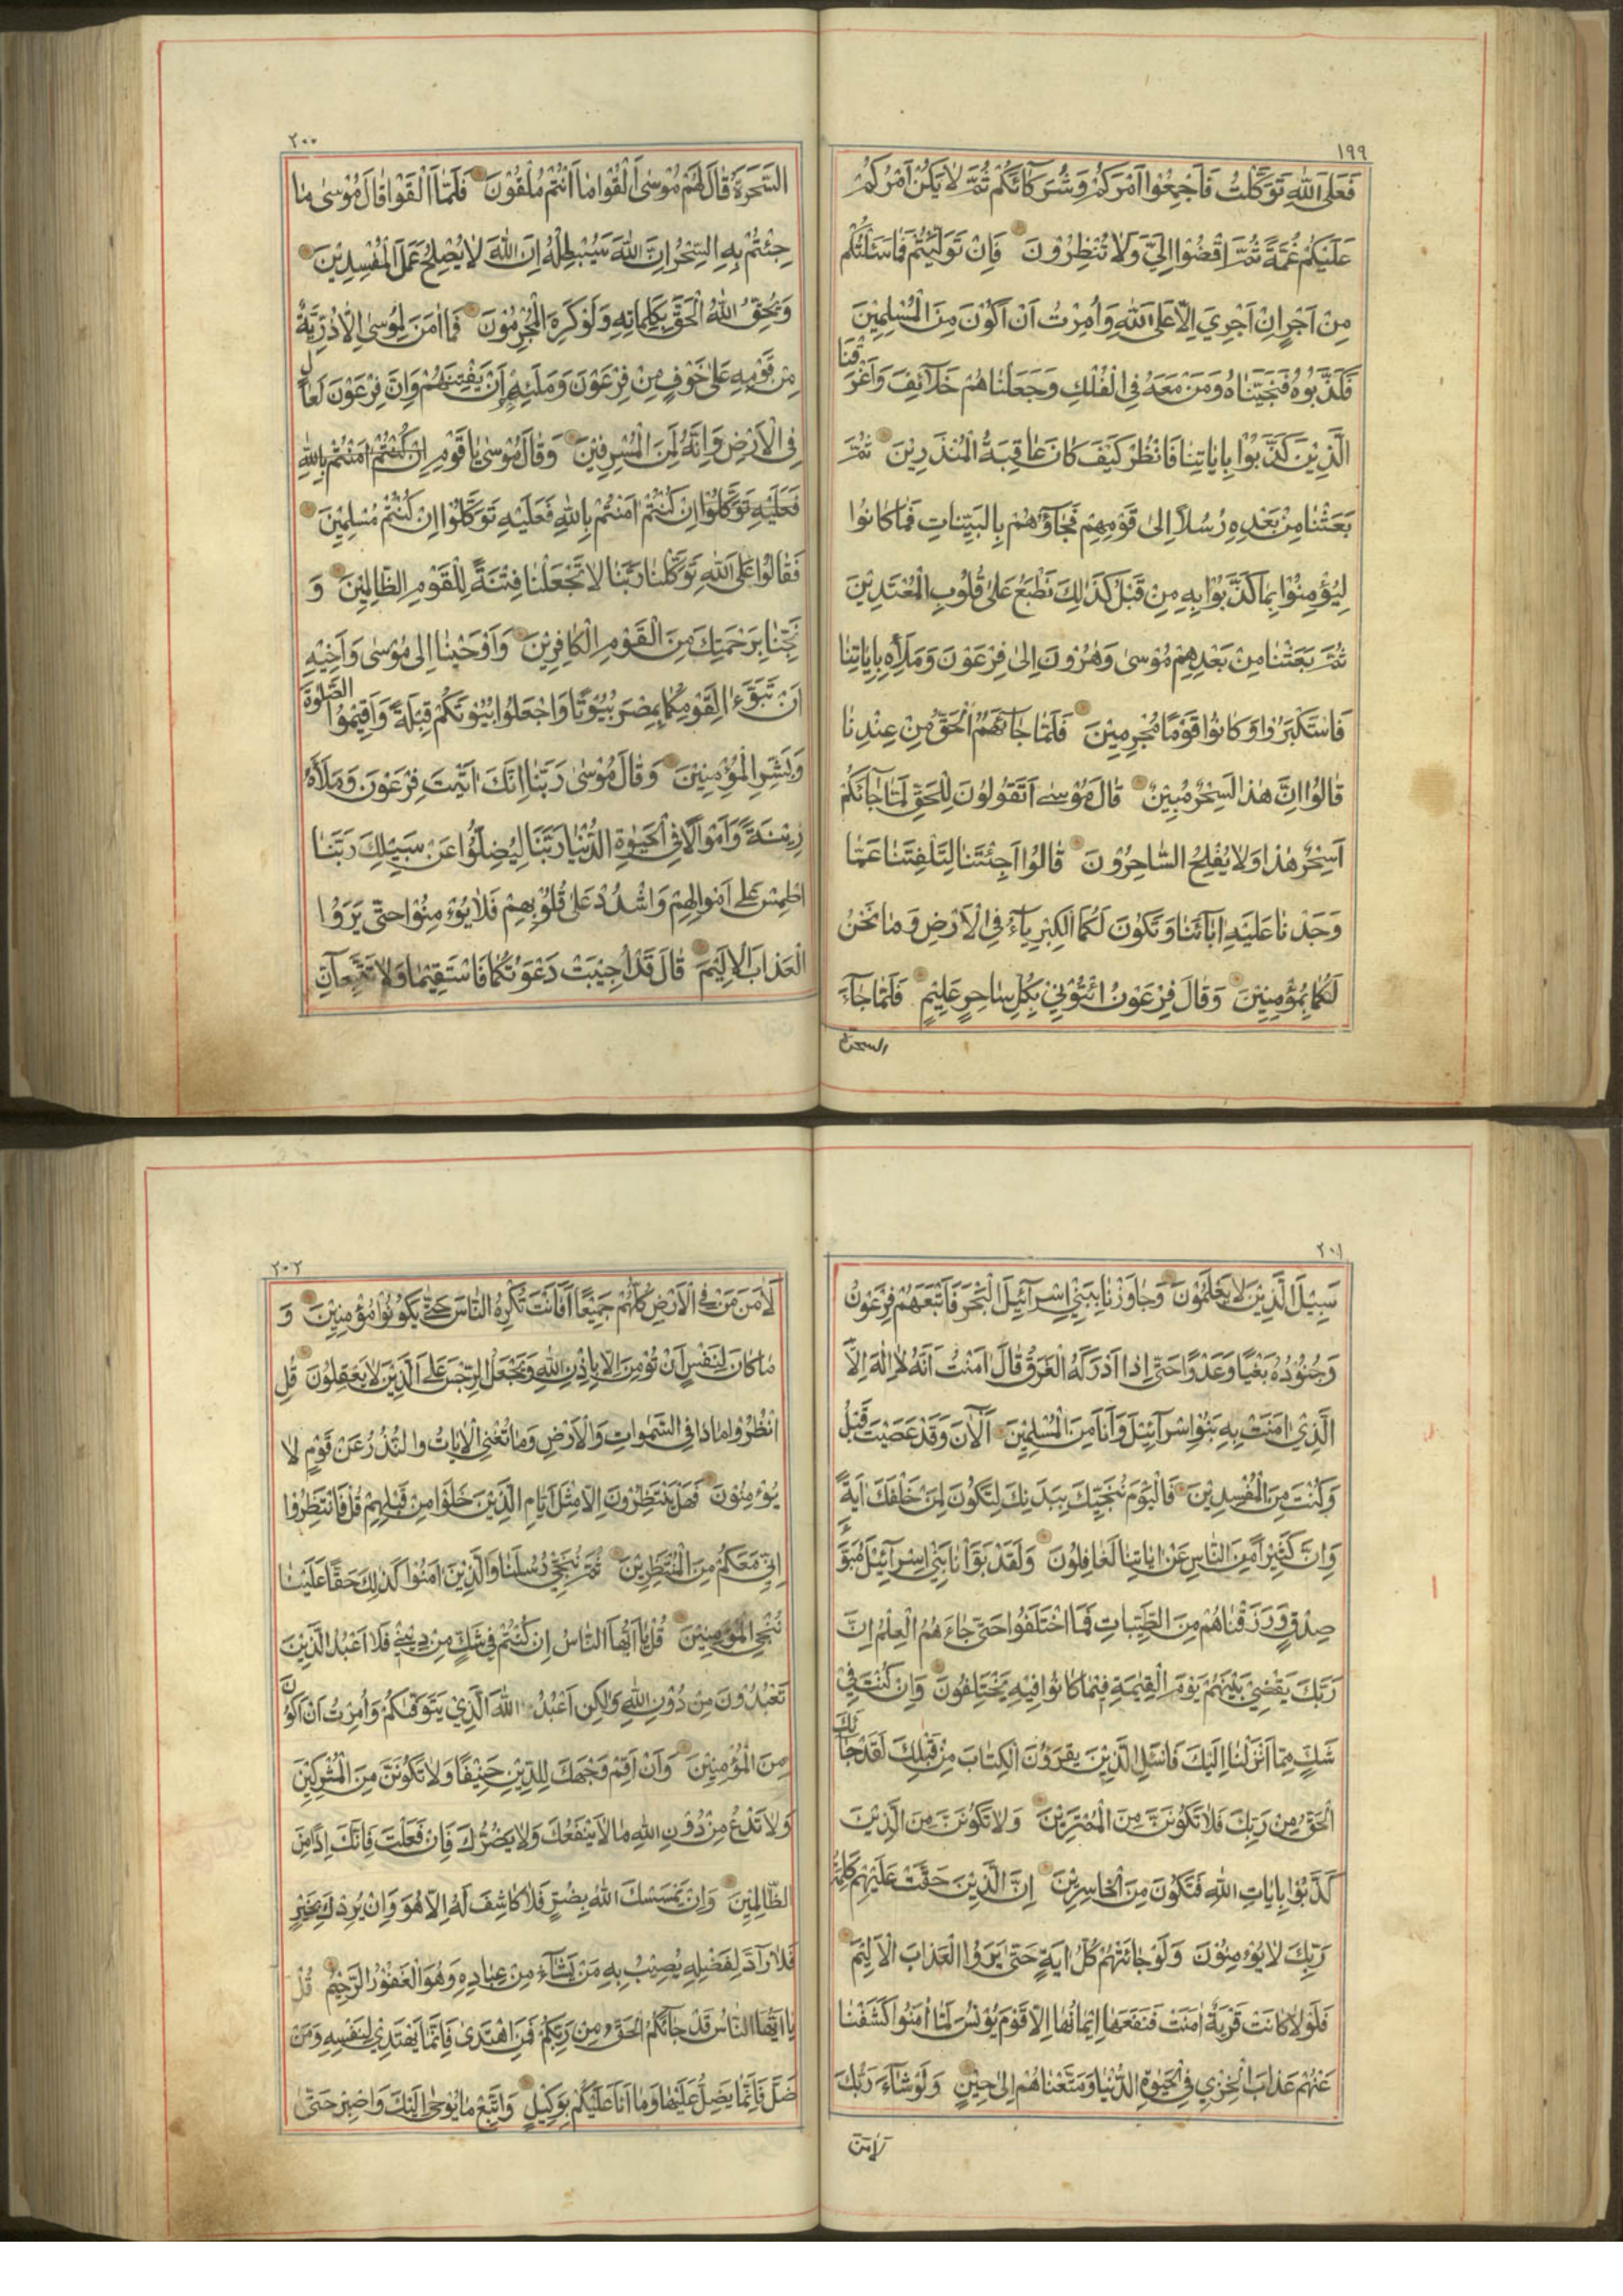 ١٩٩
فَعَلَى اللّٰهِ تَوَكَّلْتُ فَاَجْمِعُوا اَمْرَكُمْ وَشُرَكَآئَكُمْ ثُمَّ لَا يَكُنْ اَمْرُكُمْ
عَلَيْكُمْ غُمَّةً ثُمَّ اقْضُوْا اِلَيَّ وَلَا تُنْظِرُوْنَ فَاِنْ تَوَلَّيْتُمْ فَمَا سَئَلْتُكُمْ
مِنْ اَجْرٍ اِنْ اَجْرِيَ اِلَّا عَلَى اللّٰهِ وَاُمِرْتُ اَنْ اَكُوْنَ مِنَ الْمُسْلِمِيْنَ
فَكَذَّبُوْهُ فَنَجَّيْنَاهُ وَمَنْ مَعَهُ فِي الْفُلْكِ وَجَعَلْنَاهُمْ خَلَآئِفَ وَاَغْرَقْنَا
الَّذِيْنَ كَذَّبُوْا بِاٰيَاتِنَا فَانْظُرْ كَيْفَ كَانَ عَاقِبَةُ الْمُنْذَرِيْنَ ثُمَّ
بَعَثْنَا مِنْ بَعْدِهِ رُسُلًا اِلٰى قَوْمِهِمْ فَجَاؤُهُمْ بِالْبَيِّنَاتِ فَمَا كَانُوا
لِيُؤْمِنُوْا بِمَا كَذَّبُوْا بِهِ مِنْ قَبْلُ كَذٰلِكَ نَطْبَعُ عَلٰى قُلُوْبِ الْمُعْتَدِيْنَ
ثُمَّ بَعَثْنَا مِنْ بَعْدِهِمْ مُوْسٰى وَهٰرُوْنَ اِلٰى فِرْعَوْنَ وَمَلَأِهِ بِاٰيَاتِنَا
فَاسْتَكْبَرُوْا وَكَانُوْا قَوْمًا مُجْرِمِيْنَ فَلَمَّا جَآئَهُمُ الْحَقُّ مِنْ عِنْدِنَا
قَالُوْا اِنَّ هٰذَا لَسِحْرٌ مُبِيْنٌ قَالَ مُوْسٰى اَتَقُوْلُوْنَ لِلْحَقِّ لَمَّا جَآئَكُمْ
اَسِحْرٌ هٰذَا وَلَا يُفْلِحُ السَّاحِرُوْنَ قَالُوْا اَجِئْتَنَا لِتَلْفِتَنَا عَمَّا
وَجَدْنَا عَلَيْهِ اٰبَآئَنَا وَتَكُوْنَ لَكُمَا الْكِبْرِيَآءُ فِي الْاَرْضِ وَمَا نَحْنُ
لَكُمَا بِمُؤْمِنِيْنَ وَقَالَ فِرْعَوْنُ ائْتُوْنِيْ بِكُلِّ سَاحِرٍ عَلِيْمٍ فَلَمَّا جَآءَ
السحرة
٢٠٠
السَّحَرَةُ قَالَ لَهُمْ مُوْسٰى اَلْقُوْا مَا اَنْتُمْ مُلْقُوْنَ فَلَمَّا اَلْقَوْا قَالَ مُوْسٰى مَا
جِئْتُمْ بِهِ السِّحْرُ اِنَّ اللّٰهَ سَيُبْطِلُهُ اِنَّ اللّٰهَ لَا يُصْلِحُ عَمَلَ الْمُفْسِدِيْنَ
وَيُحِقُّ اللّٰهُ الْحَقَّ بِكَلِمَاتِهِ وَلَوْ كَرِهَ الْمُجْرِمُوْنَ فَمَا اٰمَنَ لِمُوْسٰى اِلَّا ذُرِّيَّةٌ
مِنْ قَوْمِهِ عَلٰى خَوْفٍ مِنْ فِرْعَوْنَ وَمَلَئِهِمْ اَنْ يَفْتِنَهُمْ وَاِنَّ فِرْعَوْنَ لَعَالٍ
فِي الْاَرْضِ وَاِنَّهُ لَمِنَ الْمُسْرِفِيْنَ وَقَالَ مُوْسٰى يَا قَوْمِ اِنْ كُنْتُمْ اٰمَنْتُمْ بِاللّٰهِ
فَعَلَيْهِ تَوَكَّلُوْا اِنْ كُنْتُمْ اٰمَنْتُمْ بِاللّٰهِ فَعَلَيْهِ تَوَكَّلُوْا اِنْ كُنْتُمْ مُسْلِمِيْنَ
فَقَالُوْا عَلَى اللّٰهِ تَوَكَّلْنَا رَبَّنَا لَا تَجْعَلْنَا فِتْنَةً لِلْقَوْمِ الظَّالِمِيْنَ وَ
نَجِّنَا بِرَحْمَتِكَ مِنَ الْقَوْمِ الْكَافِرِيْنَ وَاَوْحَيْنَا اِلٰى مُوْسٰى وَاَخِيْهِ
اَنْ تَبَوَّءَا لِقَوْمِكُمَا بِمِصْرَ بُيُوْتًا وَاجْعَلُوْا بُيُوْتَكُمْ قِبْلَةً وَاَقِيْمُوا الصَّلٰوةَ
وَبَشِّرِ الْمُؤْمِنِيْنَ وَقَالَ مُوْسٰى رَبَّنَا اِنَّكَ اٰتَيْتَ فِرْعَوْنَ وَمَلَأَهُ
زِيْنَةً وَاَمْوَالًا فِي الْحَيٰوةِ الدُّنْيَا رَبَّنَا لِيُضِلُّوْا عَنْ سَبِيْلِكَ رَبَّنَا
اطْمِسْ عَلٰى اَمْوَالِهِمْ وَاشْدُدْ عَلٰى قُلُوْبِهِمْ فَلَا يُؤْمِنُوْا حَتّٰى يَرَوُا
الْعَذَابَ الْاَلِيْمَ قَالَ قَدْ اُجِيْبَتْ دَعْوَتُكُمَا فَاسْتَقِيْمَا وَلَا تَتَّبِعَآنِّ
٢٠١
سَبِيْلَ الَّذِيْنَ لَا يَعْلَمُوْنَ وَجَاوَزْنَا بِبَنِيْ اِسْرَآئِيْلَ الْبَحْرَ فَاَتْبَعَهُمْ فِرْعَوْنُ
وَجُنُوْدُهُ بَغْيًا وَعَدْوًا حَتّٰى اِذَا اَدْرَكَهُ الْغَرَقُ قَالَ اٰمَنْتُ اَنَّهُ لَا اِلٰهَ اِلَّا
الَّذِيْ اٰمَنَتْ بِهِ بَنُوْا اِسْرَآئِيْلَ وَاَنَا مِنَ الْمُسْلِمِيْنَ اٰلْاٰنَ وَقَدْ عَصَيْتَ قَبْلُ
وَكُنْتَ مِنَ الْمُفْسِدِيْنَ فَالْيَوْمَ نُنَجِّيْكَ بِبَدَنِكَ لِتَكُوْنَ لِمَنْ خَلْفَكَ اٰيَةً
وَاِنَّ كَثِيْرًا مِنَ النَّاسِ عَنْ اٰيَاتِنَا لَغَافِلُوْنَ وَلَقَدْ بَوَّاْنَا بَنِيْ اِسْرَآئِيْلَ مُبَوَّءَ
صِدْقٍ وَرَزَقْنَاهُمْ مِنَ الطَّيِّبَاتِ فَمَا اخْتَلَفُوْا حَتّٰى جَاءَهُمُ الْعِلْمُ اِنَّ
رَبَّكَ يَقْضِيْ بَيْنَهُمْ يَوْمَ الْقِيٰمَةِ فِيْمَا كَانُوْا فِيْهِ يَخْتَلِفُوْنَ وَاِنْ كُنْتَ فِيْ
شَكٍّ مِمَّا اَنْزَلْنَا اِلَيْكَ فَاسْئَلِ الَّذِيْنَ يَقْرَؤُنَ الْكِتَابَ مِنْ قَبْلِكَ لَقَدْ جَآئَكَ
الْحَقُّ مِنْ رَبِّكَ فَلَا تَكُوْنَنَّ مِنَ الْمُمْتَرِيْنَ وَلَا تَكُوْنَنَّ مِنَ الَّذِيْنَ
كَذَّبُوْا بِاٰيَاتِ اللّٰهِ فَتَكُوْنَ مِنَ الْخَاسِرِيْنَ اِنَّ الَّذِيْنَ حَقَّتْ عَلَيْهِمْ كَلِمَةُ
رَبِّكَ لَا يُؤْمِنُوْنَ وَلَوْ جَائَتْهُمْ كُلُّ اٰيَةٍ حَتّٰى يَرَوُا الْعَذَابَ الْاَلِيْمَ
فَلَوْلَا كَانَتْ قَرْيَةٌ اٰمَنَتْ فَنَفَعَهَا اِيْمَانُهَا اِلَّا قَوْمَ يُوْنُسَ لَمَّا اٰمَنُوْا كَشَفْنَا
عَنْهُمْ عَذَابَ الْخِزْيِ فِي الْحَيٰوةِ الدُّنْيَا وَمَتَّعْنَاهُمْ اِلٰى حِيْنٍ وَلَوْ شَآءَ رَبُّكَ
لَاٰمَنَ
٢٠٢
لَاٰمَنَ مَنْ فِي الْاَرْضِ كُلُّهُمْ جَمِيْعًا اَفَاَنْتَ تُكْرِهُ النَّاسَ حَتّٰى يَكُوْنُوْا مُؤْمِنِيْنَ وَ
مَا كَانَ لِنَفْسٍ اَنْ تُؤْمِنَ اِلَّا بِاِذْنِ اللّٰهِ وَيَجْعَلُ الرِّجْسَ عَلَى الَّذِيْنَ لَا يَعْقِلُوْنَ قُلِ
انْظُرُوْا مَاذَا فِي السَّمٰوَاتِ وَالْاَرْضِ وَمَا تُغْنِي الْاٰيَاتُ وَالنُّذُرُ عَنْ قَوْمٍ لَا
يُؤْمِنُوْنَ فَهَلْ يَنْتَظِرُوْنَ اِلَّا مِثْلَ اَيَّامِ الَّذِيْنَ خَلَوْا مِنْ قَبْلِهِمْ قُلْ فَانْتَظِرُوْا
اِنِّيْ مَعَكُمْ مِنَ الْمُنْتَظِرِيْنَ ثُمَّ نُنَجِّيْ رُسُلَنَا وَالَّذِيْنَ اٰمَنُوْا كَذٰلِكَ حَقًّا عَلَيْنَا
نُنْجِ الْمُؤْمِنِيْنَ قُلْ يَا اَيُّهَا النَّاسُ اِنْ كُنْتُمْ فِيْ شَكٍّ مِنْ دِيْنِيْ فَلَا اَعْبُدُ الَّذِيْنَ
تَعْبُدُوْنَ مِنْ دُوْنِ اللّٰهِ وَلٰكِنْ اَعْبُدُ اللّٰهَ الَّذِيْ يَتَوَفّٰكُمْ وَاُمِرْتُ اَنْ اَكُوْنَ
مِنَ الْمُؤْمِنِيْنَ وَاَنْ اَقِمْ وَجْهَكَ لِلدِّيْنِ حَنِيْفًا وَلَا تَكُوْنَنَّ مِنَ الْمُشْرِكِيْنَ
وَلَا تَدْعُ مِنْ دُوْنِ اللّٰهِ مَا لَا يَنْفَعُكَ وَلَا يَضُرُّكَ فَاِنْ فَعَلْتَ فَاِنَّكَ اِذًا مِنَ
الظَّالِمِيْنَ وَاِنْ يَمْسَسْكَ اللّٰهُ بِضُرٍّ فَلَا كَاشِفَ لَهُ اِلَّا هُوَ وَاِنْ يُرِدْكَ بِخَيْرٍ
فَلَا رَآدَّ لِفَضْلِهِ يُصِيْبُ بِهِ مَنْ يَشَآءُ مِنْ عِبَادِهِ وَهُوَ الْغَفُوْرُ الرَّحِيْمُ قُلْ
يَا اَيُّهَا النَّاسُ قَدْ جَآئَكُمُ الْحَقُّ مِنْ رَبِّكُمْ فَمَنِ اهْتَدٰى فَاِنَّمَا يَهْتَدِيْ لِنَفْسِهِ وَمَنْ
ضَلَّ فَاِنَّمَا يَضِلُّ عَلَيْهَا وَمَا اَنَا عَلَيْكُمْ بِوَكِيْلٍ وَاتَّبِعْ مَا يُوْحٰى اِلَيْكَ وَاصْبِرْ حَتّٰى